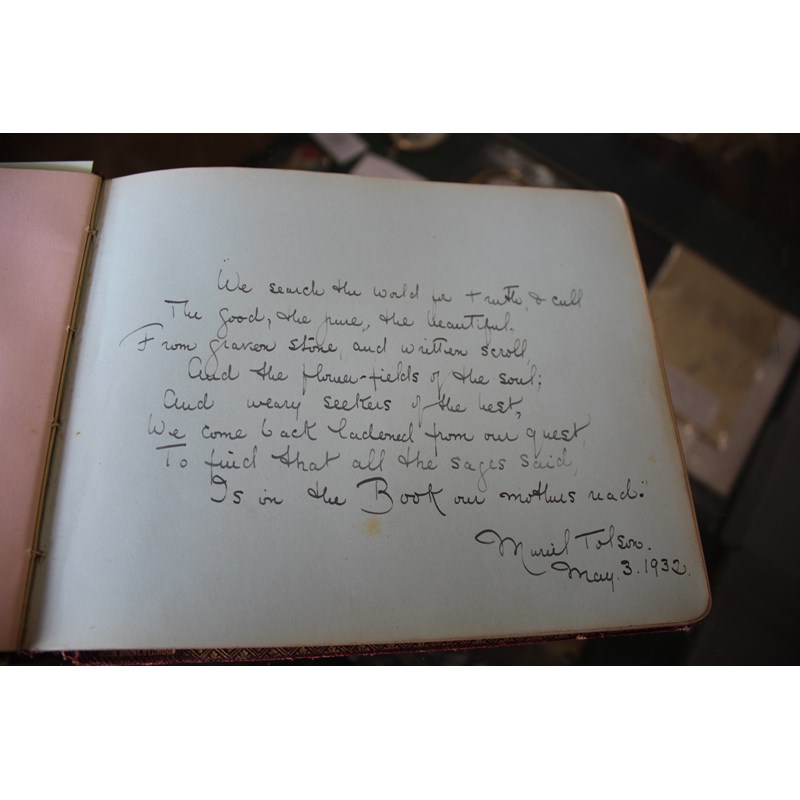 "We search the world for truth, & cull
The good, the pure, the beautiful.
From graven stone, and written scroll,
And the flower-fields of the soul;
And weary seekers of the best,
We come back ladened from our quest,
To find that all the sages said,
Is in the Book our mothers read."
Muriel Tolson.
May. 3. 1932.